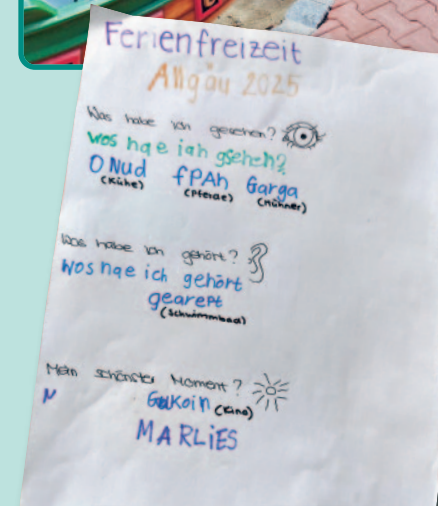 Ferienfreizeit
Allgäu 2025
Was habe ich gesehen?
wos hqe iqh gsehen?
O Nud fPAh Garga
(Kühe) (Pferde) (Hühner)
Was habe ich gehört?
wos hqe ich gehört
gearept
(Schwimmbad)
Mein schönster Moment?
N GuKoin (Kino)
MARLiES